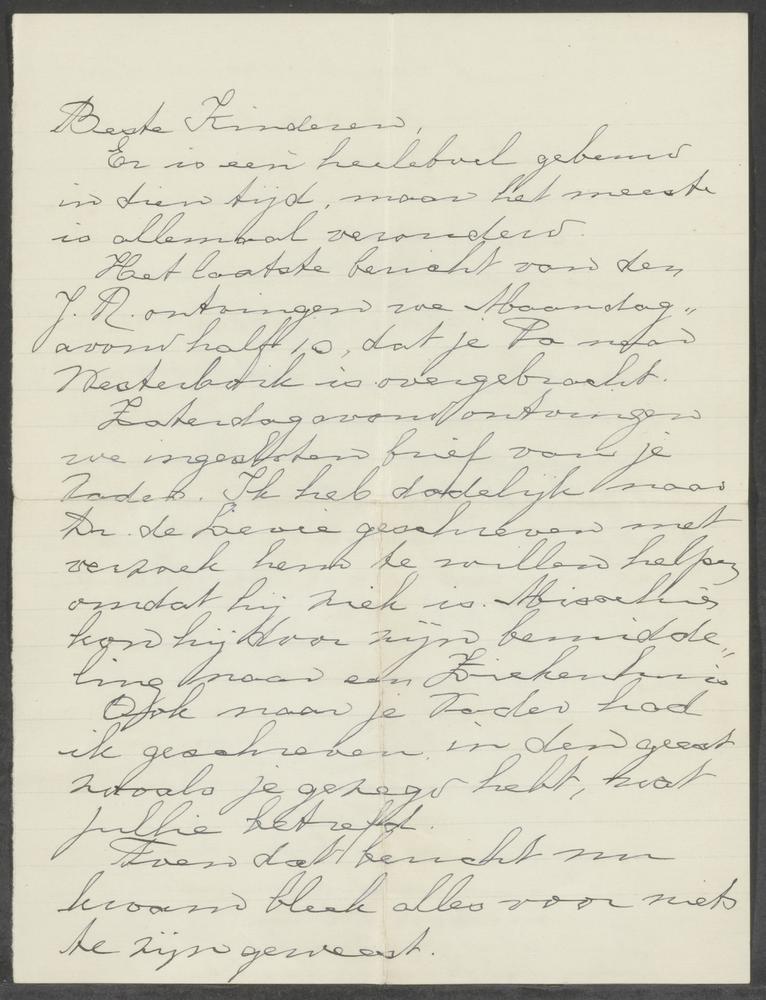 Beste Kinderen,
Er is een heeleboel gebeurd
in dien tijd, maar het meeste
is allemaal veranderd.
Het laatste bericht van den
J. R. ontvingen we Maandag„
avond half 10, dat je Pa naar
Westerbork is overgebracht.
Zaterdagavond ontvingen
we ingesloten brief van je
Vader. Ik heb dadelijk naar
Dr. de geschreven met
verzoek hem te willen helpen
omdat hij ziek is. Misschien
kon hij door zijn bemidde„
ling naar een Ziekenhuis
Ook naar je Vader had
ik geschreven in den geest
zooals je gezegd hebt, wat
jullie betreft.
Toen dat bericht nu
kwam bleek alles voor niets
te zijn geweest.